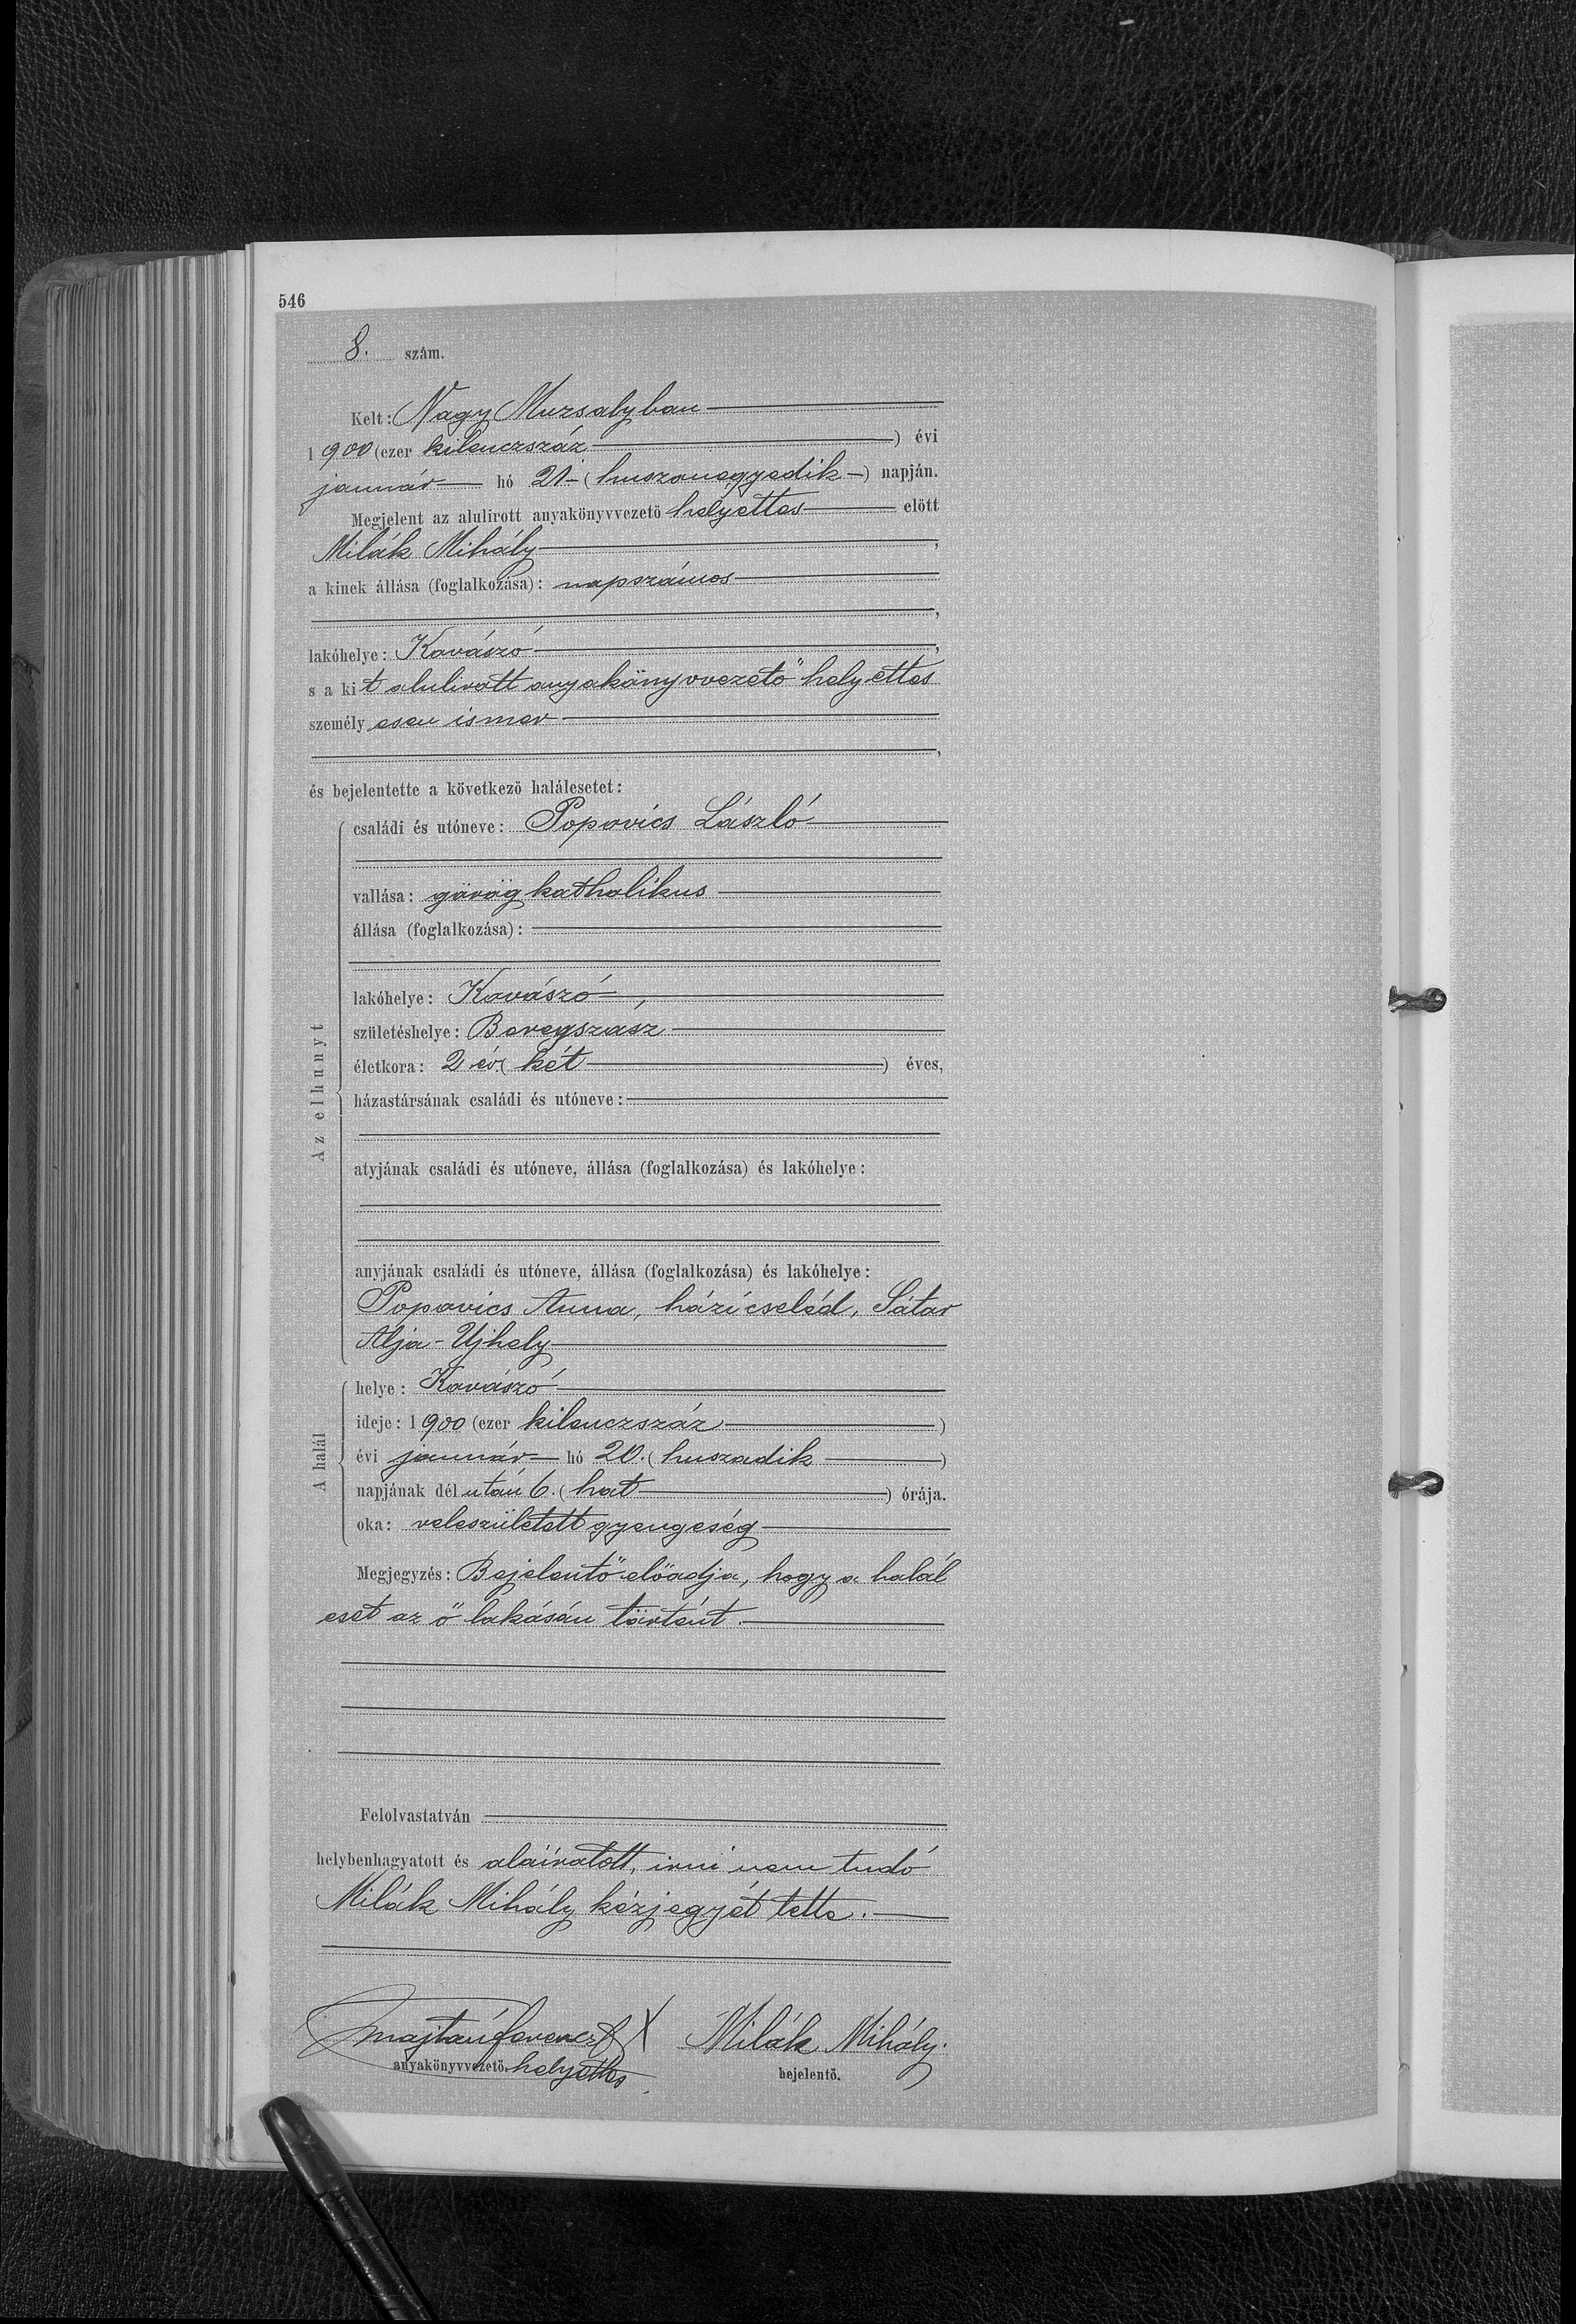 546
8. szám.
Kelt: Nagy Muzsalyban
1900 (ezer kilenczszáz) évi
január hó 21 (huszonegyedik) napján.
Megjelent az alulirott anyakönyvvezető helyettes előtt
Milák Mihály,
a kinek állása (foglalkozása): napszámos
,
lakóhelye: Kovászó,
s a kit alulirott anyakönyvvezető helyettes
személyesen ismer
,
és bejelentette a következő halálesetet:
Az elhunyt
családi és utóneve: Popovics László
vallása: görög katholikus
állása (foglalkozása):
lakóhelye: Kovászó,
születéshelye: Beregszász
életkora: 2 év (két) éves,
házastársának családi és utóneve:
atyjának családi és utóneve, állása (foglalkozása) és lakóhelye:
anyjának családi és utóneve, állása (foglalkozása) és lakóhelye:
Popovics Anna, házi cseléd, Sátor
Alja-Ujhely
A halál
helye: Kovászó
ideje: 1900 (ezer kilenczszáz)
évi január hó 20. (huszadik)
napjának délután 6. (hat) órája.
oka: veleszületett gyengeség
Megjegyzés: Bejelentő előadja, hogy a halál
eset az ő lakásán történt.
Felolvastatván
helybenhagyatott és aláíratott, irni nem tudó
Milák Mihály kézjegyét tette.
Majtáni Ferencz X Milák Mihály.
anyakönyvvezető. helyettes bejelentő.